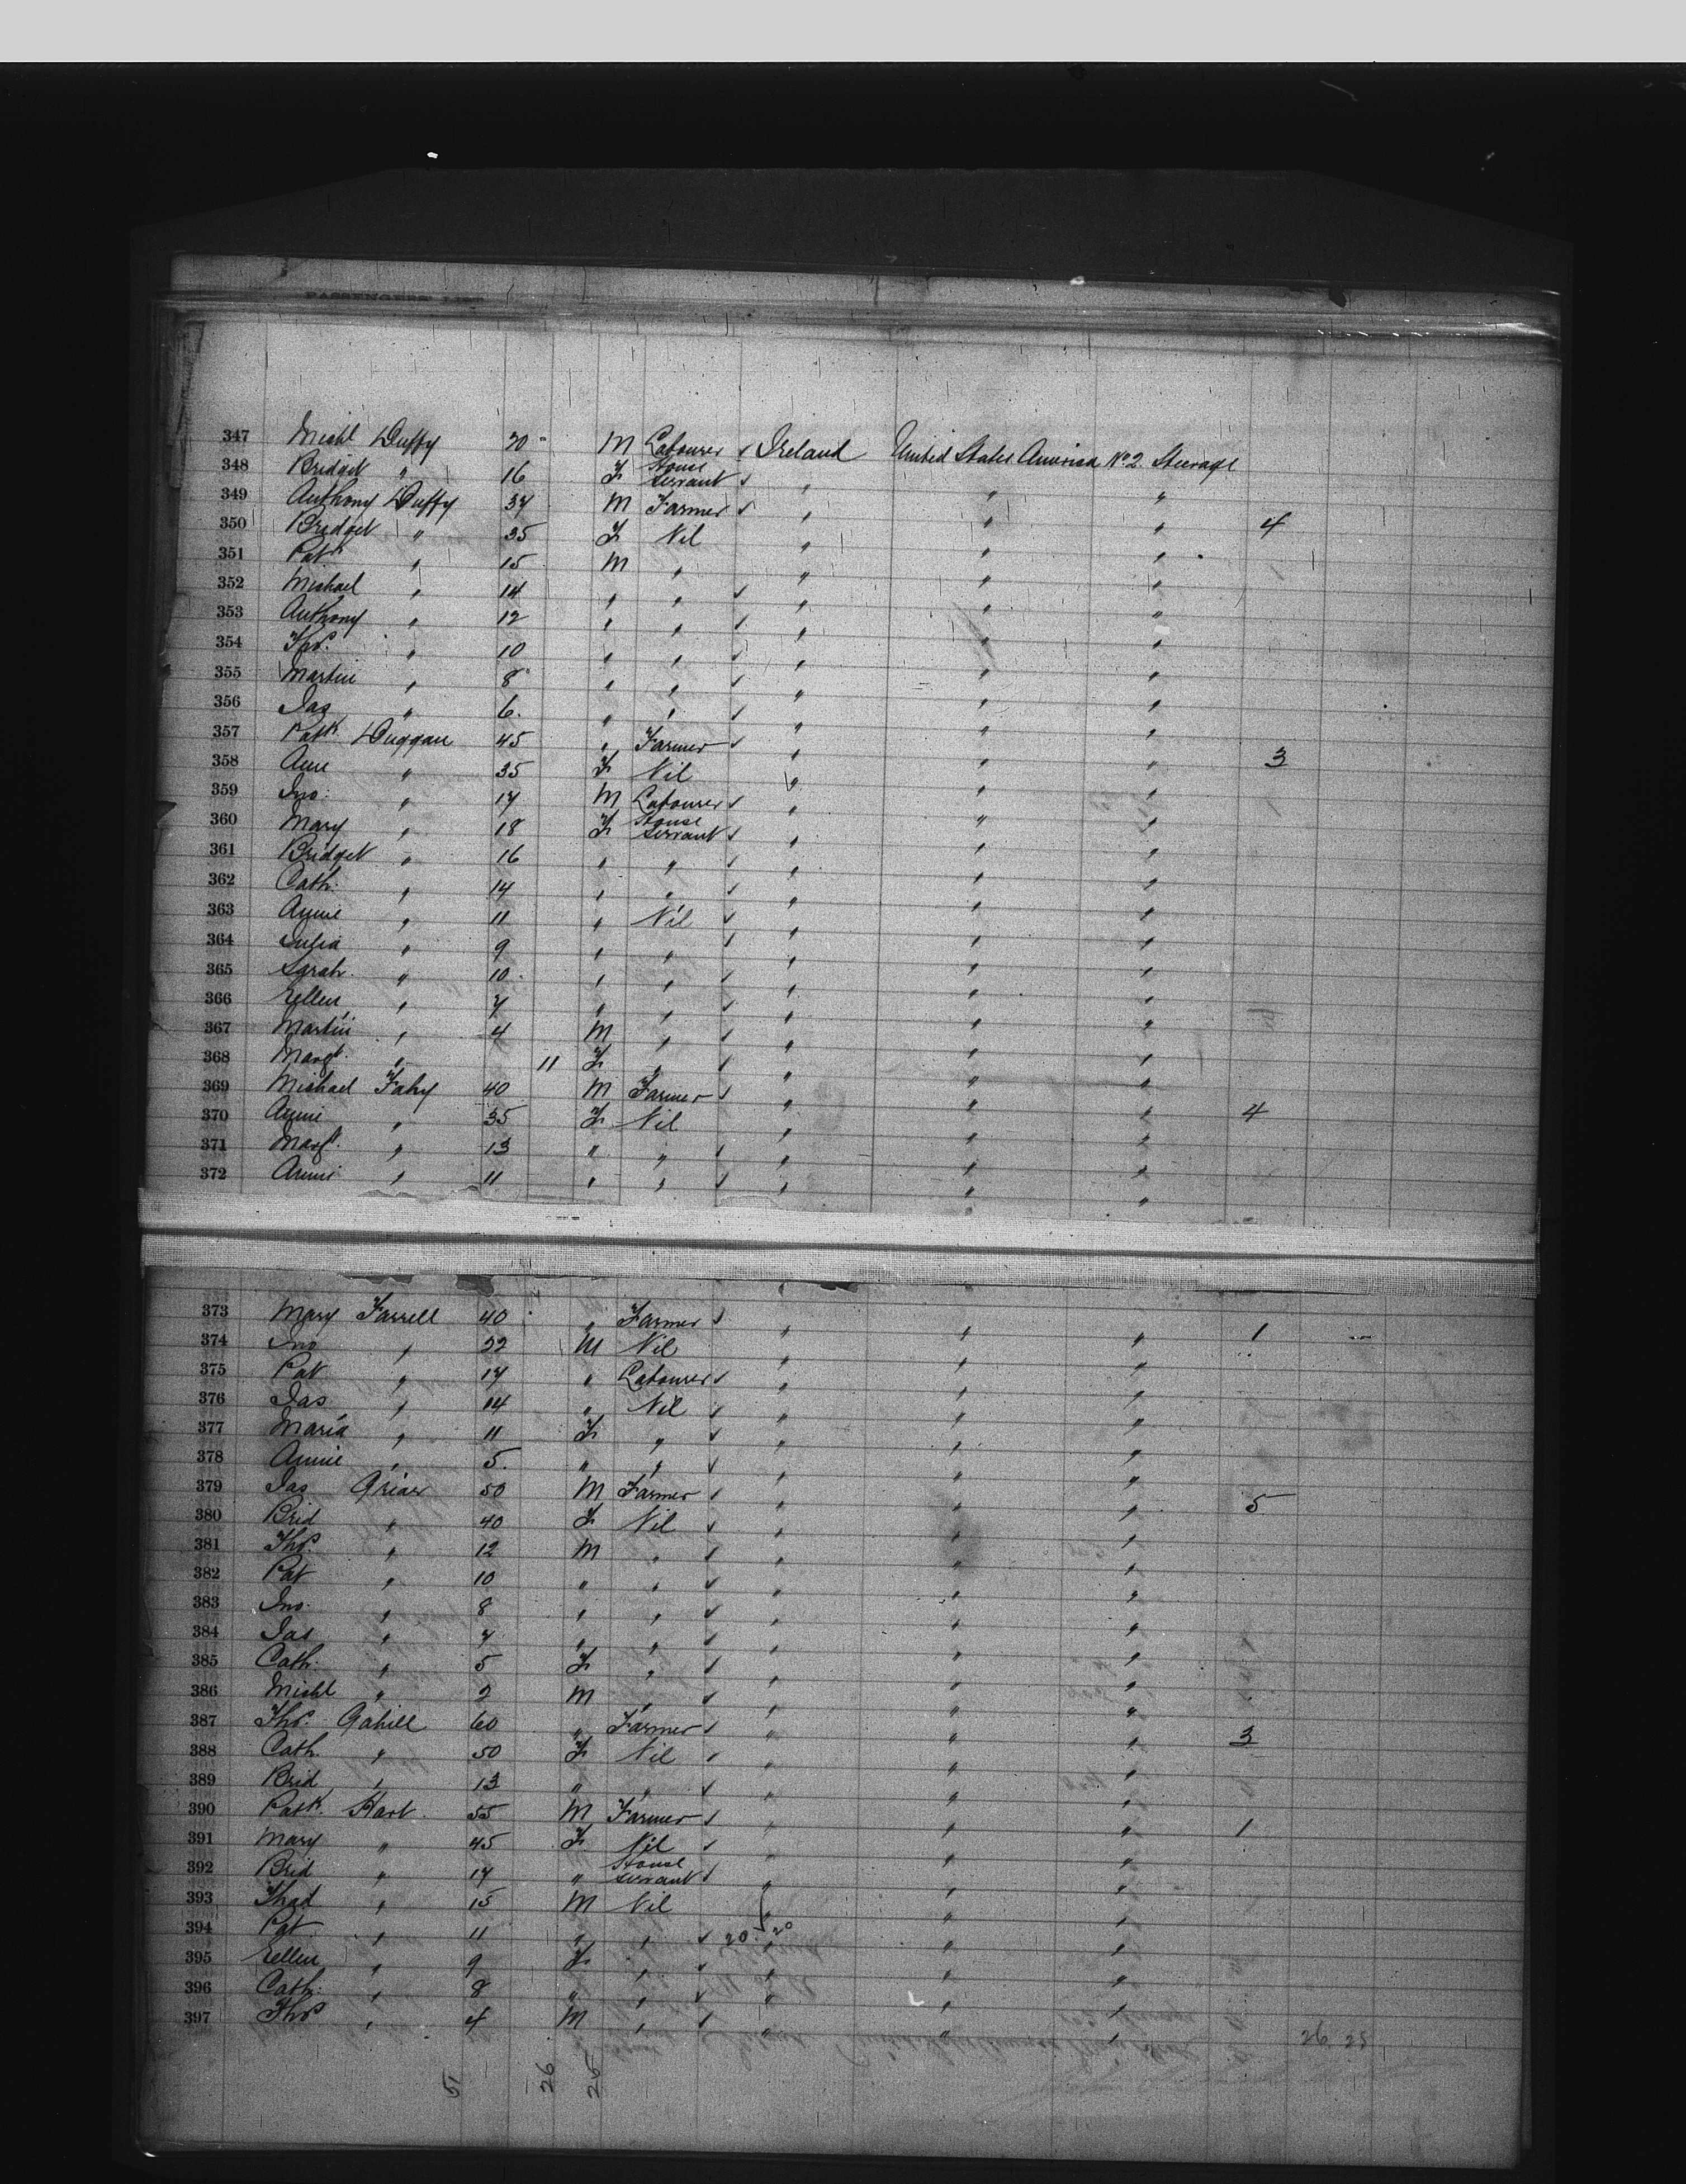 PASSENGERS' LIST
347 Michl Duffy 20 M Labourer ✓ Ireland United States America No 2 Steerage
348 Bridget " 16 F House Servant ✓ " " "
349 Anthony Duffy 37 M Farmer ✓ " " " 4
350 Bridget " 35 F Nil " " "
351 Patk " 15 M " " " "
352 Michael " 14 " " ✓ " " "
353 Anthony " 12 " " ✓ " " "
354 Thos. " 10 " " ✓ " " "
355 Martin " 8 " " ✓ " " "
356 Jas " 6 " " ✓ " " "
357 Patk Duggan 45 " Farmer ✓ " " " 3
358 Ann " 35 F Nil " " "
359 Jno. " 17 M Labourer ✓ " " "
360 Mary " 18 F House Servant ✓ " " "
361 Bridget " 16 " " ✓ " " "
362 Cath. " 14 " " ✓ " " "
363 Annie " 11 " Nil ✓ " " "
364 Julia " 9 " " ✓ " " "
365 Sarah " 10 " " ✓ " " "
366 Ellen " 7 " " ✓ " " "
367 Martin " 4 M " ✓ " " "
368 Margt. " 11 F " ✓ " " "
369 Michael Fahy 40 M Farmer ✓ " " " 4
370 Annie " 35 F Nil " " "
371 Margt. " 13 " " ✓ " " "
372 Annie " 11 " " ✓ " " "
373 Mary Farrell 40 " Farmer ✓ " " " 1
374 Jno " 22 M Nil " " "
375 Pat " 17 " Labourer ✓ " " "
376 Jas " 14 " Nil ✓ " " "
377 Maria " 11 F " ✓ " " "
378 Annie " 5 " " ✓ " " "
379 Jas Grier 50 M Farmer ✓ " " " 5
380 Brid " 40 F Nil ✓ " " "
381 Thos. " 12 M " ✓ " " "
382 Pat " 10 " " ✓ " " "
383 Jno. " 8 " " ✓ " " "
384 Jas " 7 " " ✓ " " "
385 Cath. " 5 F " ✓ " " "
386 Michl " 2 M " ✓ " " "
387 Thos. Gahill 60 " Farmer ✓ " " " 3
388 Cath. " 50 F Nil ✓ " " "
389 Brid " 13 " " ✓ " " "
390 Patk. Hart 55 M Farmer ✓ " " " 1
391 Mary " 45 F Nil ✓ " " "
392 Brid " 17 " House Servant ✓ " " "
393 Thad " 15 M Nil " " "
394 Pat " 11 " " ✓ 20 20 " " "
395 Ellen " 9 F " ✓ " " "
396 Cath. " 8 " " ✓ " " "
397 Thos " 4 M " ✓ " " "
26 25
51 26 25